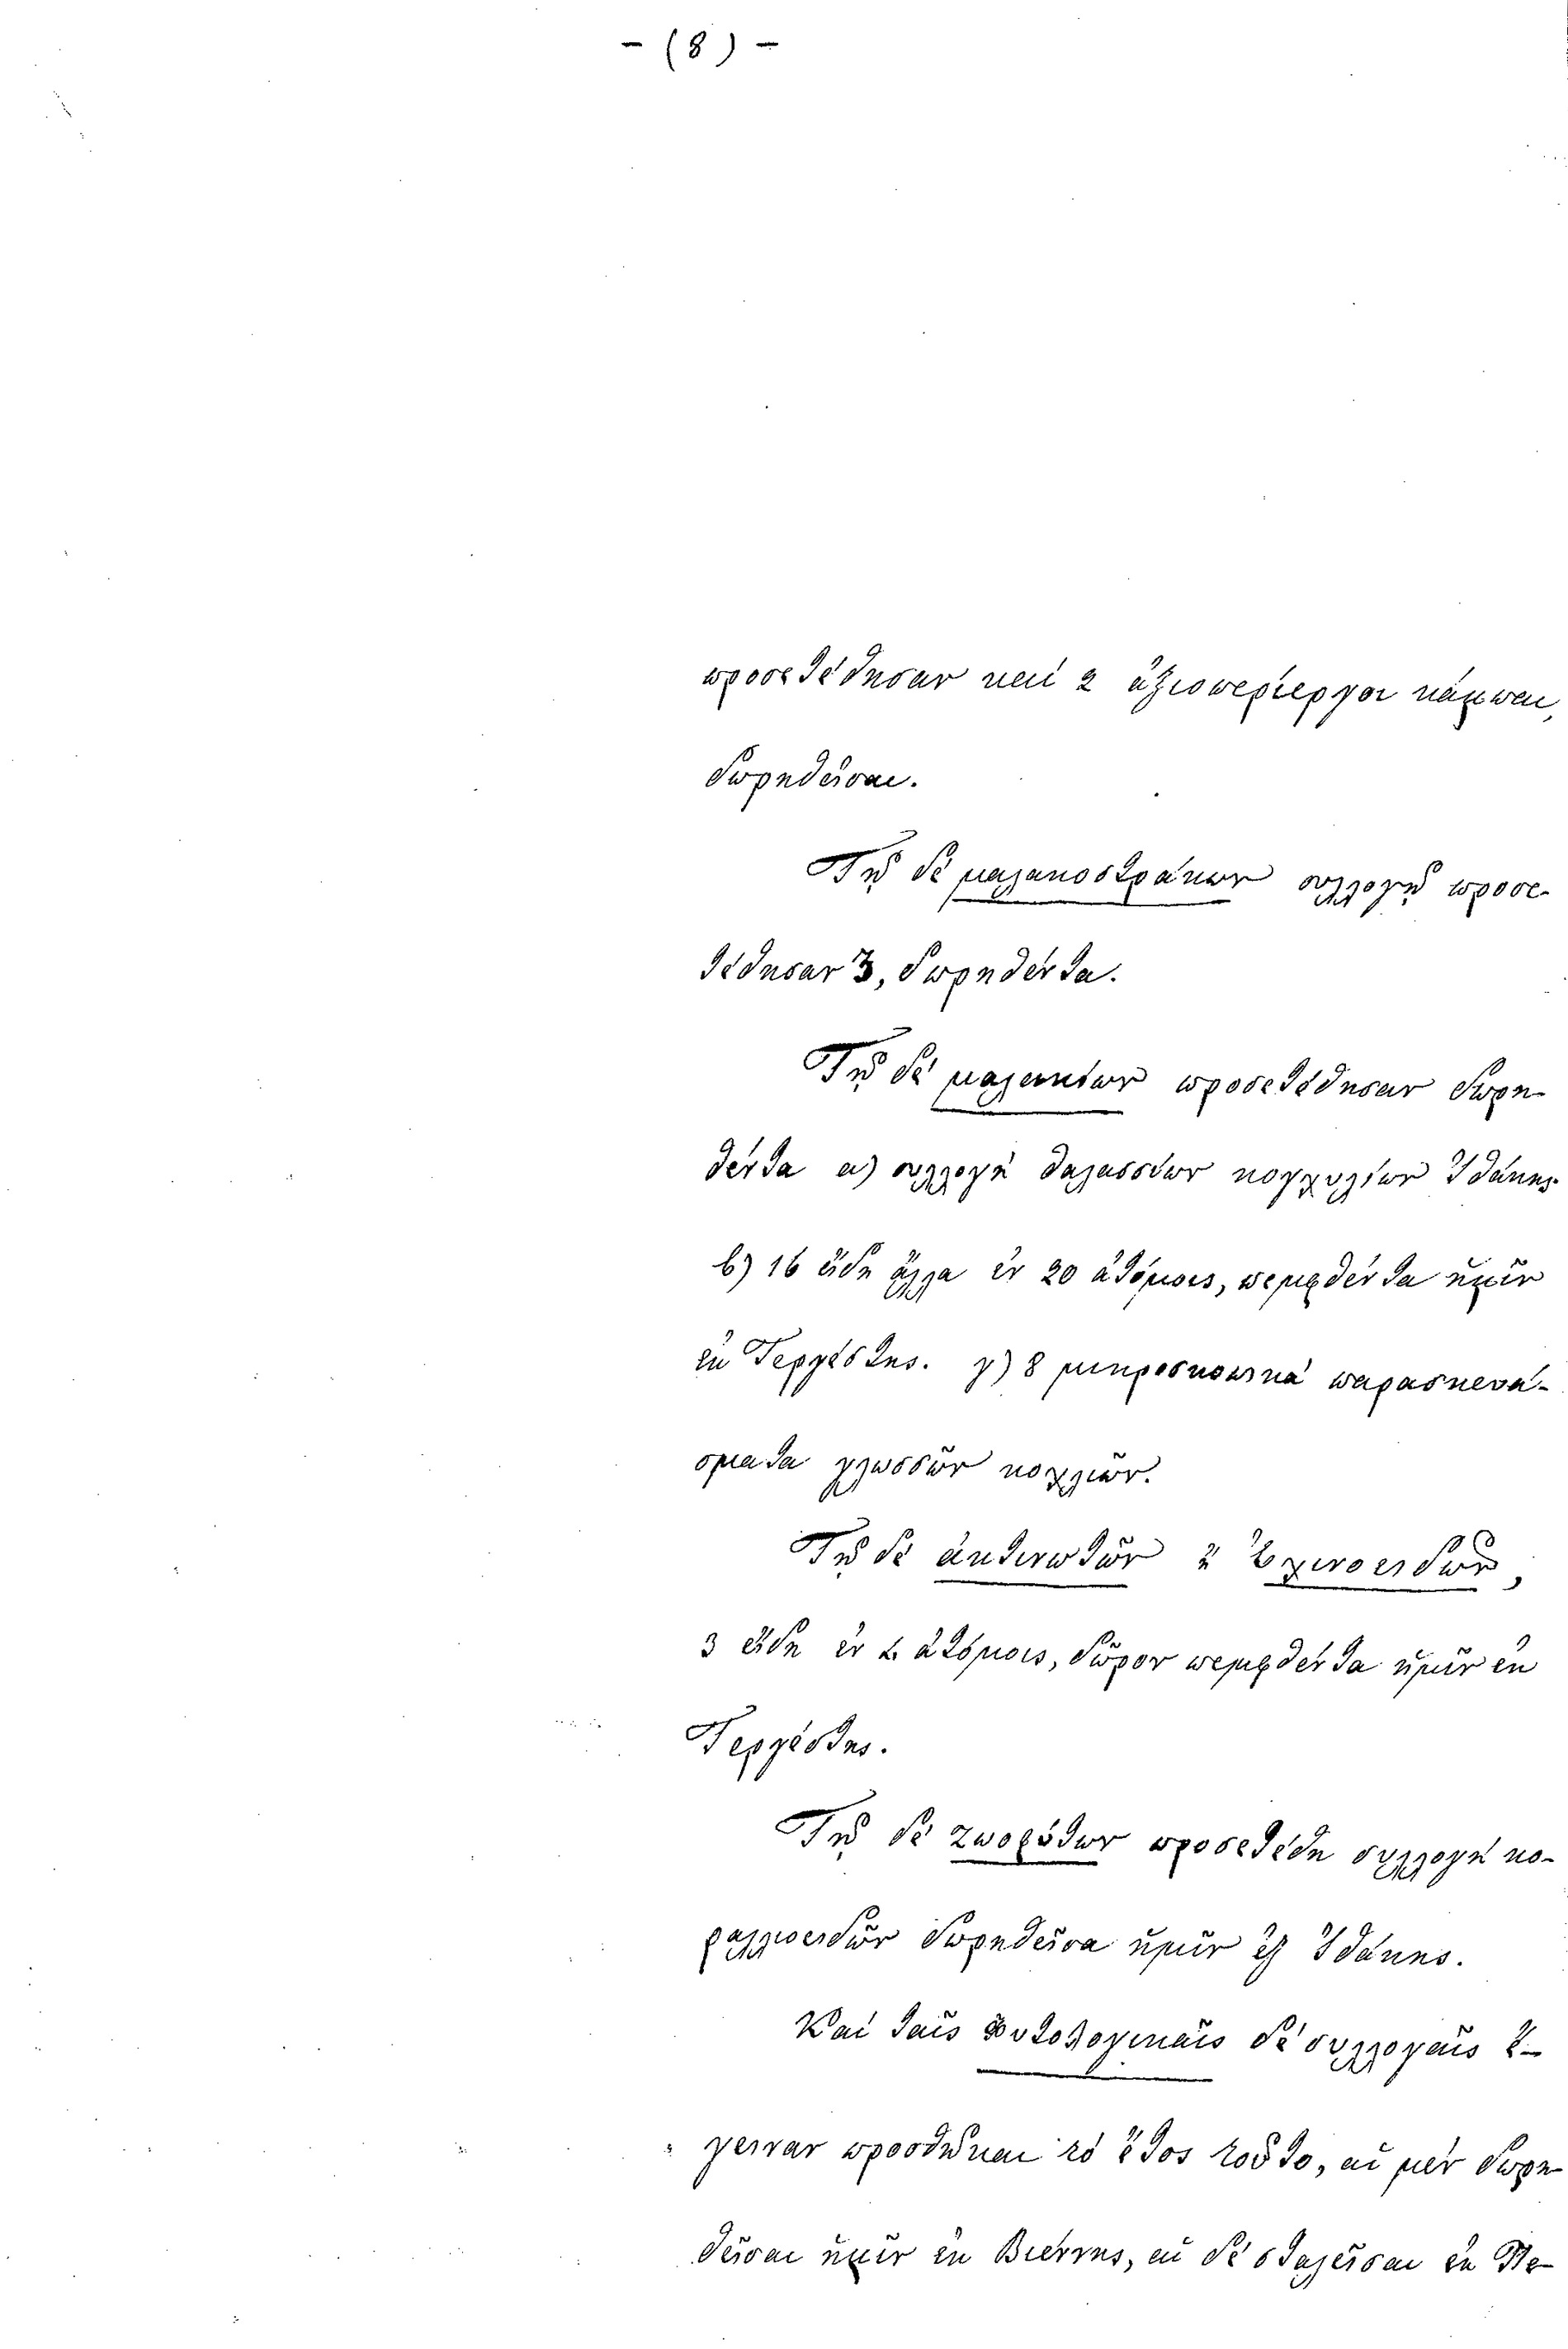 - (8) -
προσετέθησαν καί 2 ἀξιοπερίεργοι κάμπαι,
δωρηθεῖσαι.
Τῇ δέ μαλακοστράκων συλλογῇ προσε-
τέθησαν 3, δωρηθέντα.
Τῇ δέ μαλακίων προσετέθησαν δωρη-
θέντα α) συλλογή θαλασσίων κογχυλίων Ἰθάκης
β) 16 εἴδη ἄλλα ἐν 20 ἀτόμοις, πεμφθέντα ἡμῖν
ἐκ Τεργέστης. γ) 8 μικροσκοπικά παρασκευά-
σματα γλωσσῶν κοχλιῶν.
Τῇ δέ ἀκτινωτῶν ἤ Ἐχινοειδῶν,
3 εἴδη ἐν ἀτόμοις, δῶρον πεμφθέντα ἡμῖν ἐκ
Τεργέστης.
Τῇ δέ ζωοφύτων προσετέθη συλλογή κο-
ραλλιοειδῶν δωρηθεῖσα ἡμῖν ἐξ Ἰθάκης.
Καί ταῖς Φυτολογικαῖς δέ συλλογαῖς ἔ-
γειναν προσθῆκαι τό ἔτος τοῦτο, αἱ μέν δωρη-
θεῖσαι ἡμῖν ἐκ Βιέννης, αἱ δέ σταλεῖσαι ἐκ Πε-